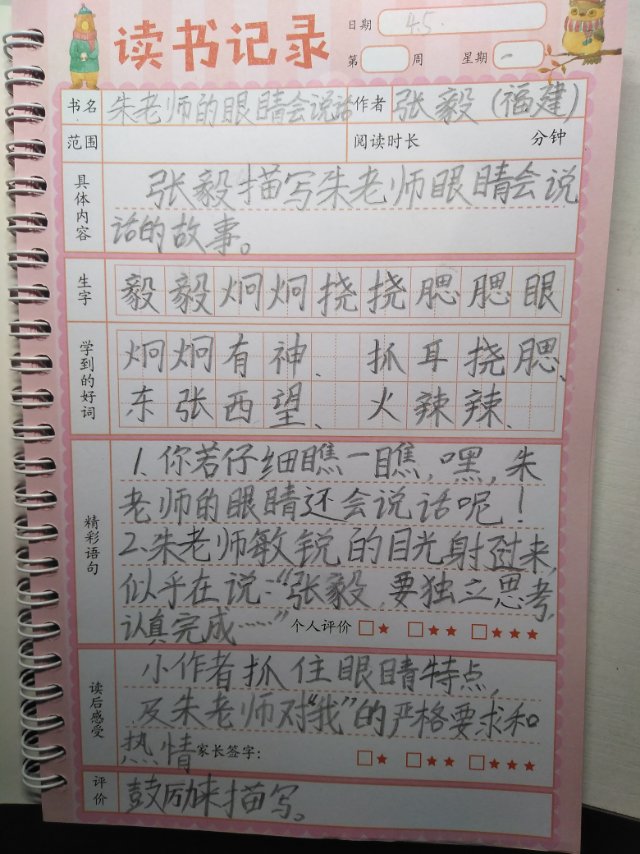 读书记录
日期 4.5.
第 周 星期 一
书名 朱老师的眼睛会说话 作者 张毅(福建)
范围 阅读时长 分钟
具体内容
张毅描写朱老师眼睛会说
话的故事。
生字
毅毅炯炯挠挠腮腮眼
学到的好词
炯炯有神、抓耳挠腮、
东张西望、火辣辣、
精彩语句
1.你若仔细瞧一瞧,嘿,朱
老师的眼睛还会说话呢!
2.朱老师敏锐的目光射过来,
似乎在说:“张毅,要独立思考,
认真完成……” 个人评价 □★ □★★ □★★★
读后感受
小作者抓住眼睛特点,
及朱老师对“我”的严格要求和
热情 家长签字: □★ □★★ □★★★
评价
鼓励来描写。